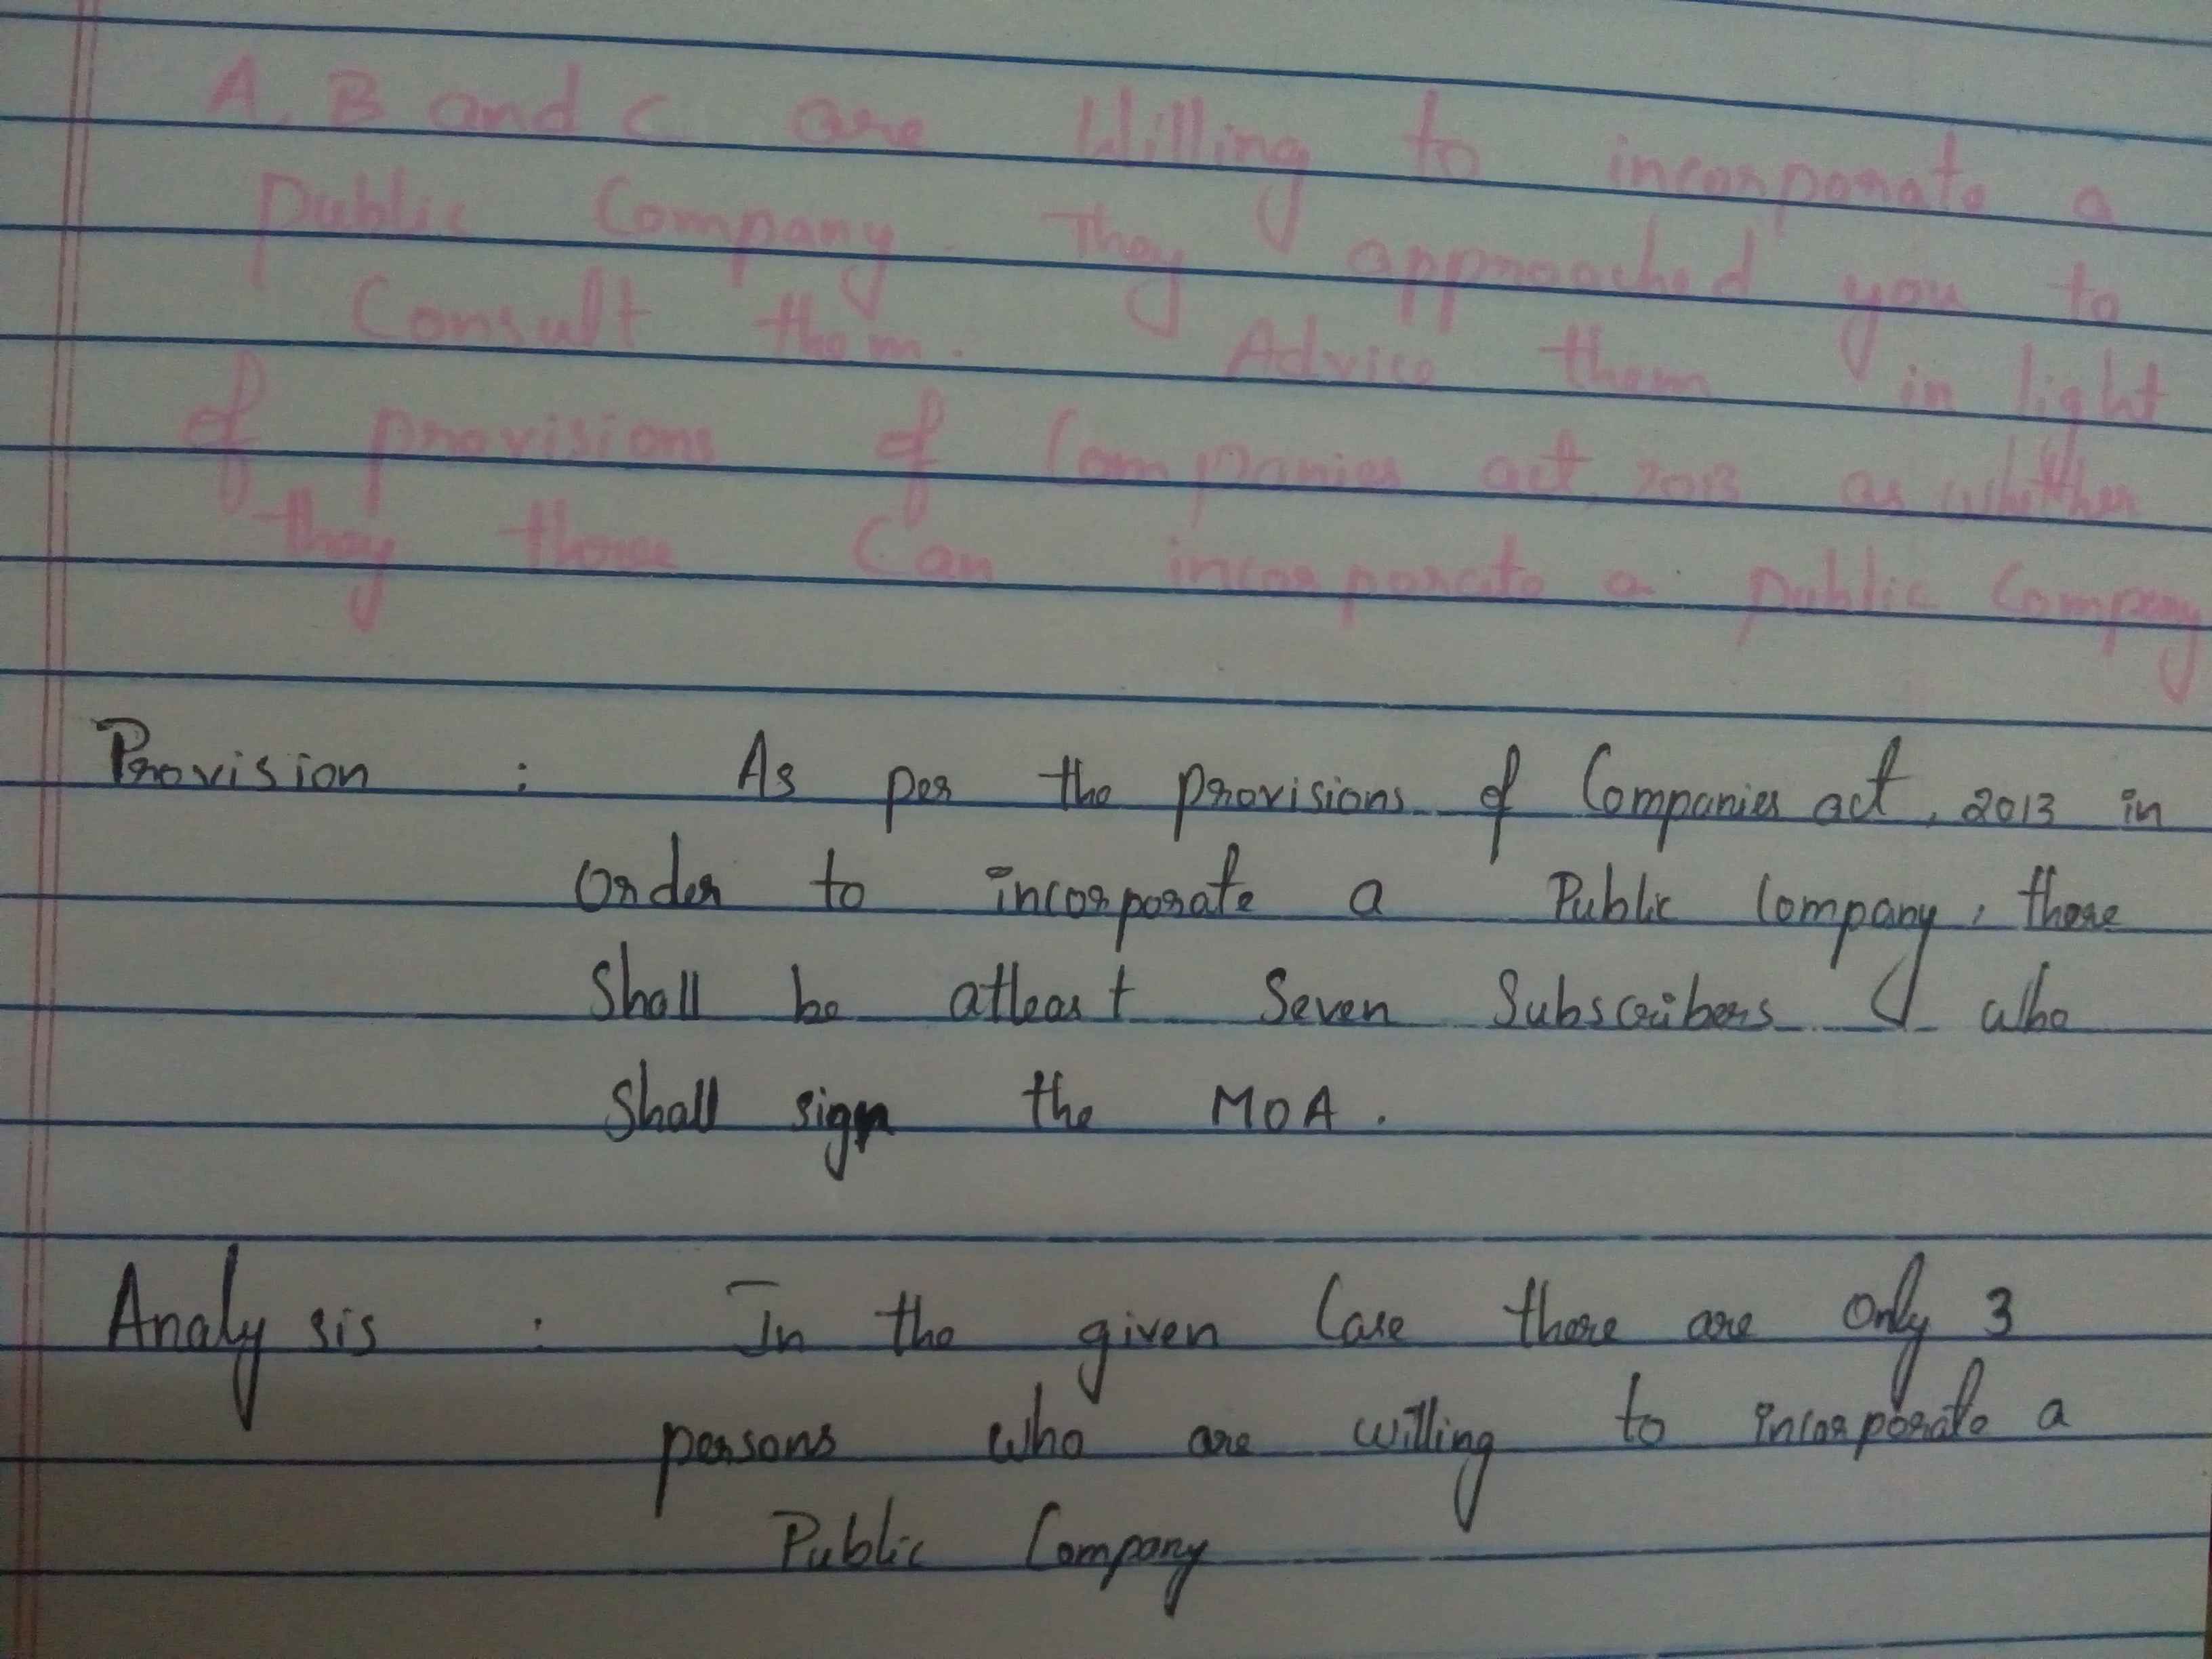 A, B and C are Willing to incorporate a
public Company. They approached you to
Consult them. Advice them in light
of provisions of Companies act, 2013 as whether
they three Can incorporate a public Company
Provision : As per the provisions of Companies act, 2013 in
order to incorporate a Public Company, there
Shall be atleast Seven Subscribers who
Shall sign the MOA.
Analysis : In the given Case there are only 3
persons who are willing to incorporate a
Public Company